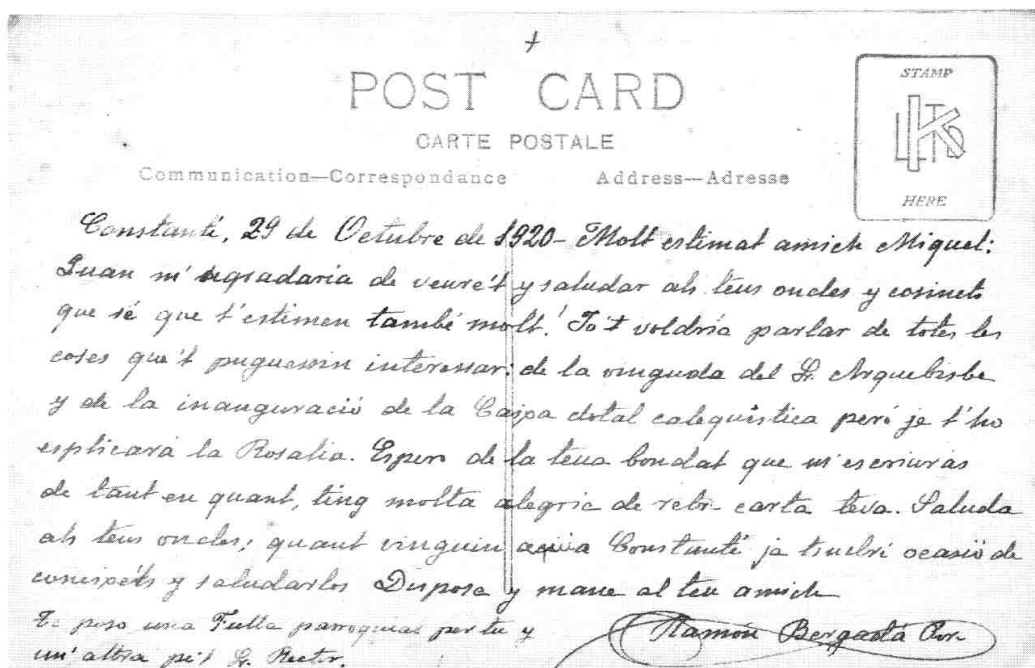 +
POST CARD
CARTE POSTALE
Communication—Correspondance Address—Adresse
STAMP
HERE
Constantí, 29 de Octubre de 1920 - Molt estimat amich Miquel:
Quan m'agradaria de veure't y saludar als teus oncles y cosinets
que sé que t'estimen també molt! Jo't voldría parlar de totes les
coses que't puguessin interessar: de la vinguda del Sr. Arquebisbe
y de la inauguració de la Caixa dotal catequística peró ja t'ho
esplicará la Rosalia. Espero de la teua bondat que m'escriurás
de tant en quant, ting molta alegria de rebre carta teva. Saluda
als teus oncles; quant vinguin aquí a Constantí ja tindré ocasió de
coneixe'ls y saludarlos Disposa y mane al teu amich
Te poso una Fulla parroquial per tu y
un' altra pe'l Sr. Rector.
Ramón Bergadá Pvre.